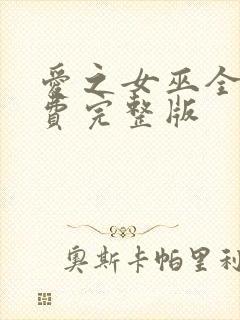 愛之女巫全
費完整版
奧斯卡帕里利